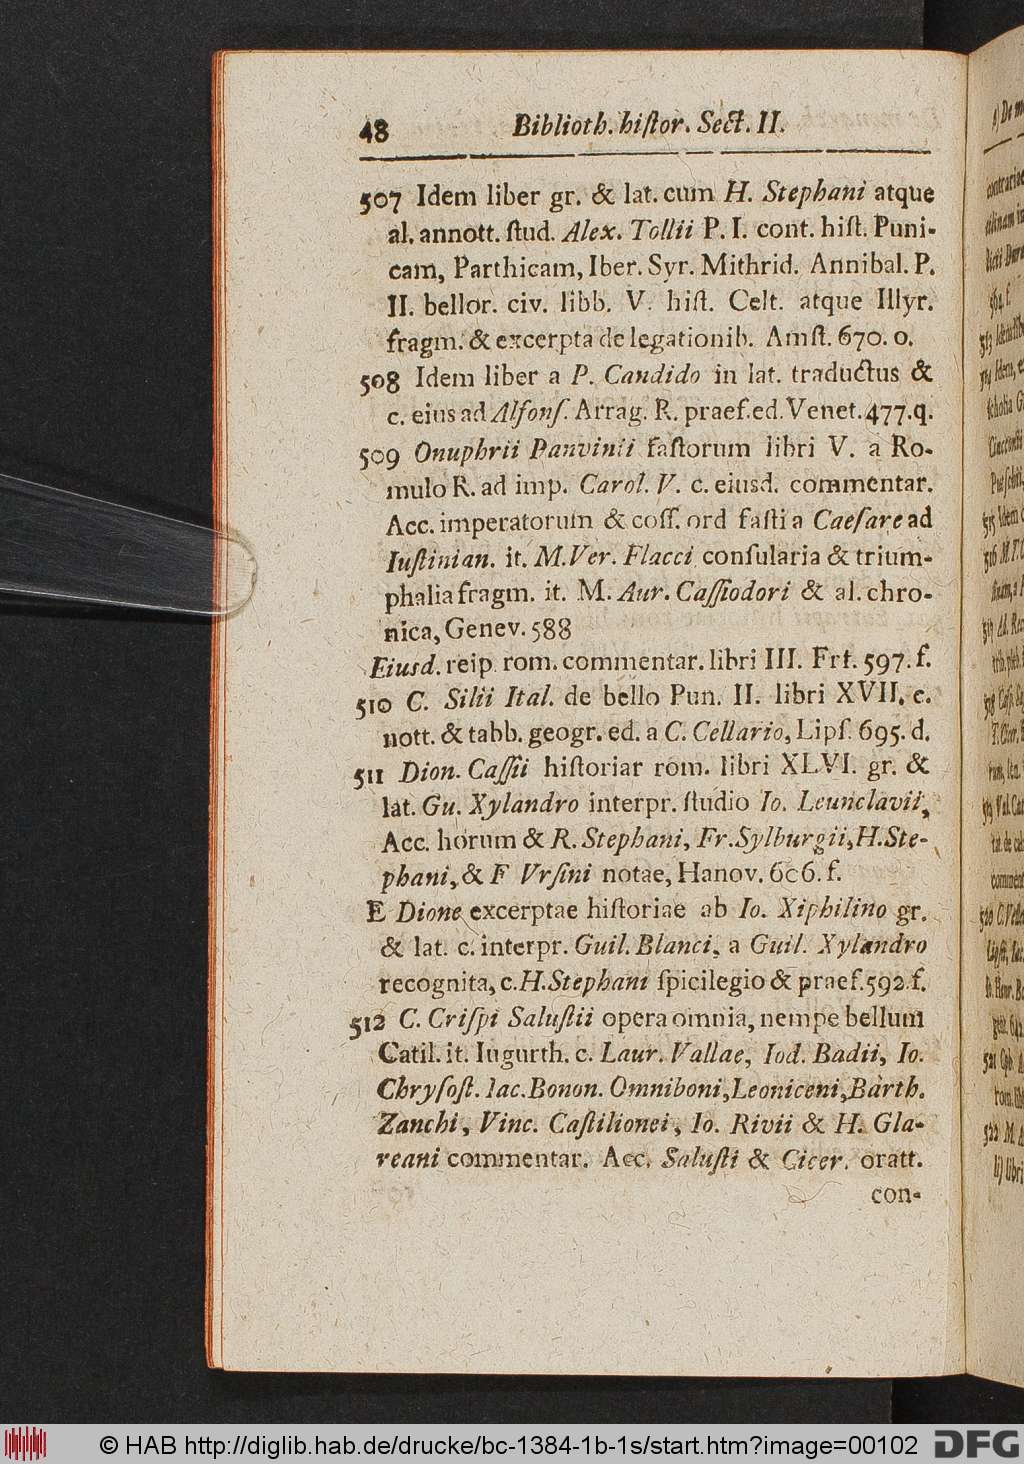 48 Biblioth. histor. Sect. II.
507 Idem liber gr. & lat. cum H. Stephani atque
al. annott. stud. Alex. Tollii P. I. cont. hist. Puni-
cam, Parthicam, Iber. Syr. Mithrid. Annibal. P.
II. bellor. civ. libb. V. hist. Celt. atque Illyr.
fragm. & excerpta de legationib. Amst. 670. o.
508 Idem liber a P. Candido in lat. traductus &
c. eius ad Alfonſ. Arrag. R. praef. ed. Venet. 477. q.
509 Onuphrii Panvinii fastorum libri V. a Ro-
mulo R. ad imp. Carol. V. c. eiusd. commentar.
Acc. imperatorum & coſſ. ord fasti a Caeſare ad
Iustinian. it. M. Ver. Flacci conſularia & trium-
phalia fragm. it. M. Aur. Caſſiodori & al. chro-
nica, Genev. 588
Eiusd. reip. rom. commentar. libri III. Frf. 597. f.
510 C. Silii Ital. de bello Pun. II. libri XVII. c.
nott. & tabb. geogr. ed. a C. Cellario, Lipſ. 695. d.
511 Dion. Caſſii historiar rom. libri XLVI. gr. &
lat. Gu. Xylandro interpr. studio Io. Leunclavii,
Acc. horum & R. Stephani, Fr. Sylburgii, H. Ste-
phani, & F Vrſini notae, Hanov. 606. f.
E Dione excerptae historiae ab Io. Xiphilino gr.
& lat. c. interpr. Guil. Blanci, a Guil. Xylandro
recognita, c. H. Stephani ſpicilegio & praef. 592. f.
512 C. Criſpi Salustii opera omnia, nempe bellum
Catil. it. Iugurth. c. Laur. Vallae, Iod. Badii, Io.
Chryſost. Iac. Bonon. Omniboni, Leoniceni, Barth.
Zanchi, Vinc. Castilionei, Io. Rivii & H. Gla-
reani commentar. Acc. Salusti & Cicer. oratt.
con-
© HAB http://diglib.hab.de/drucke/bc-1384-1b-1s/start.htm?image=00102
DFG